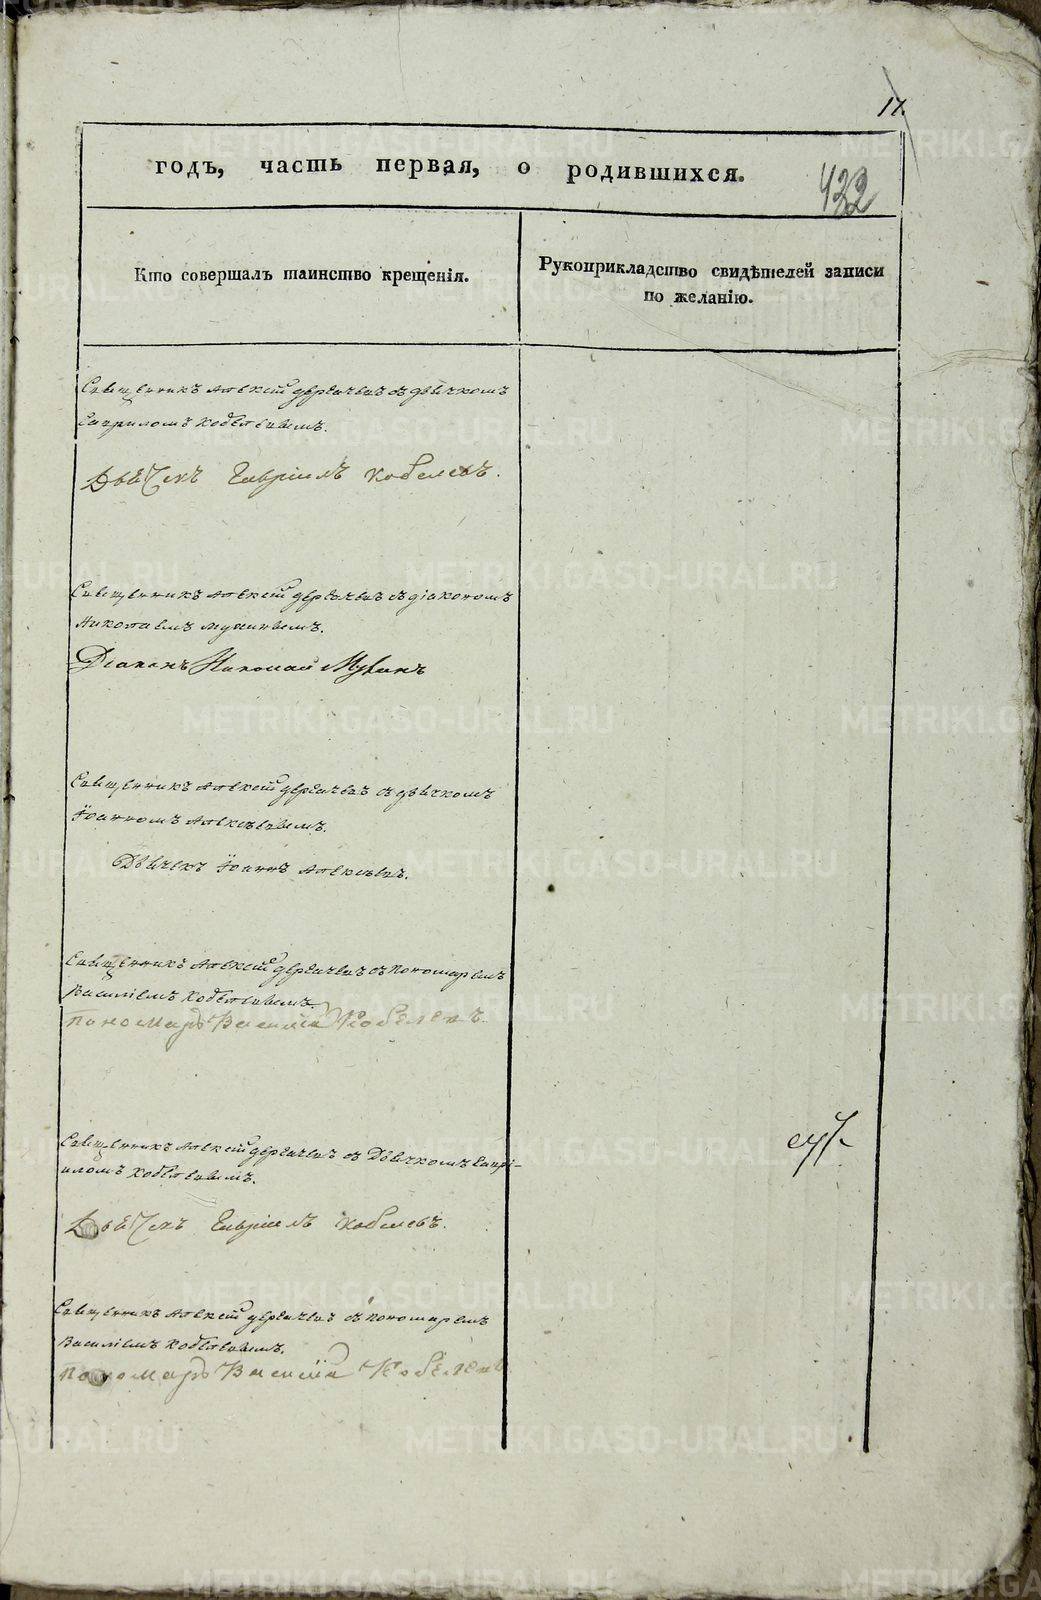 17.
годъ, часть первая, о родившихся.
422
Кто совершалъ таинство крещенія.
Рукоприкладство свидѣтелей записи
по желанію.
Священникъ Алексѣй съ дьячкомъ
Гавриломъ Кобелевымъ.
Дьячекъ Гавріилъ Кобелевъ.
Священникъ Алексѣй съ діакономъ
Николаемъ Мухинымъ.
Діаконъ Николай Мухинъ
Священникъ Алексѣй съ дьячкомъ
Іоанномъ Алексѣевымъ.
Дьячекъ Іоаннъ Алексѣевъ.
Священникъ Алексѣй съ пономаремъ
Василіемъ Кобелевымъ.
пономарь Василій Кобелевъ
Священникъ Алексѣй съ Дьячкомъ Гаврі-
иломъ Кобелевымъ.
Дьячекъ Гавріилъ Кобелевъ.
Священникъ Алексѣй съ пономаремъ
Василіемъ Кобелевымъ.
пономарь Василій Кобелевъ
METRIKI.GASO-URAL.RU